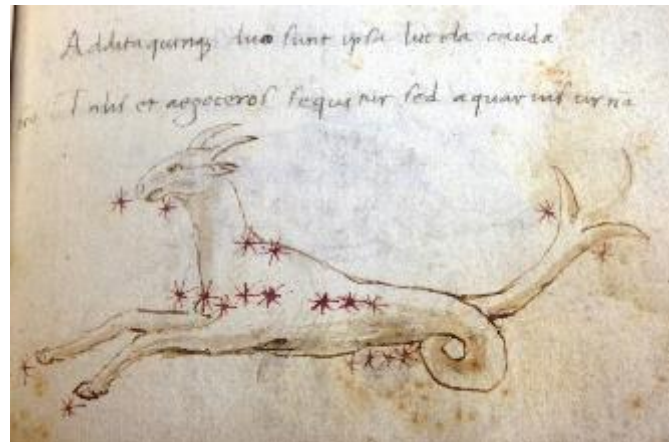 Additaquinq; duo sunt ipsi lucida cauda
Talis et aegoceros sequitur sed aquarius urna